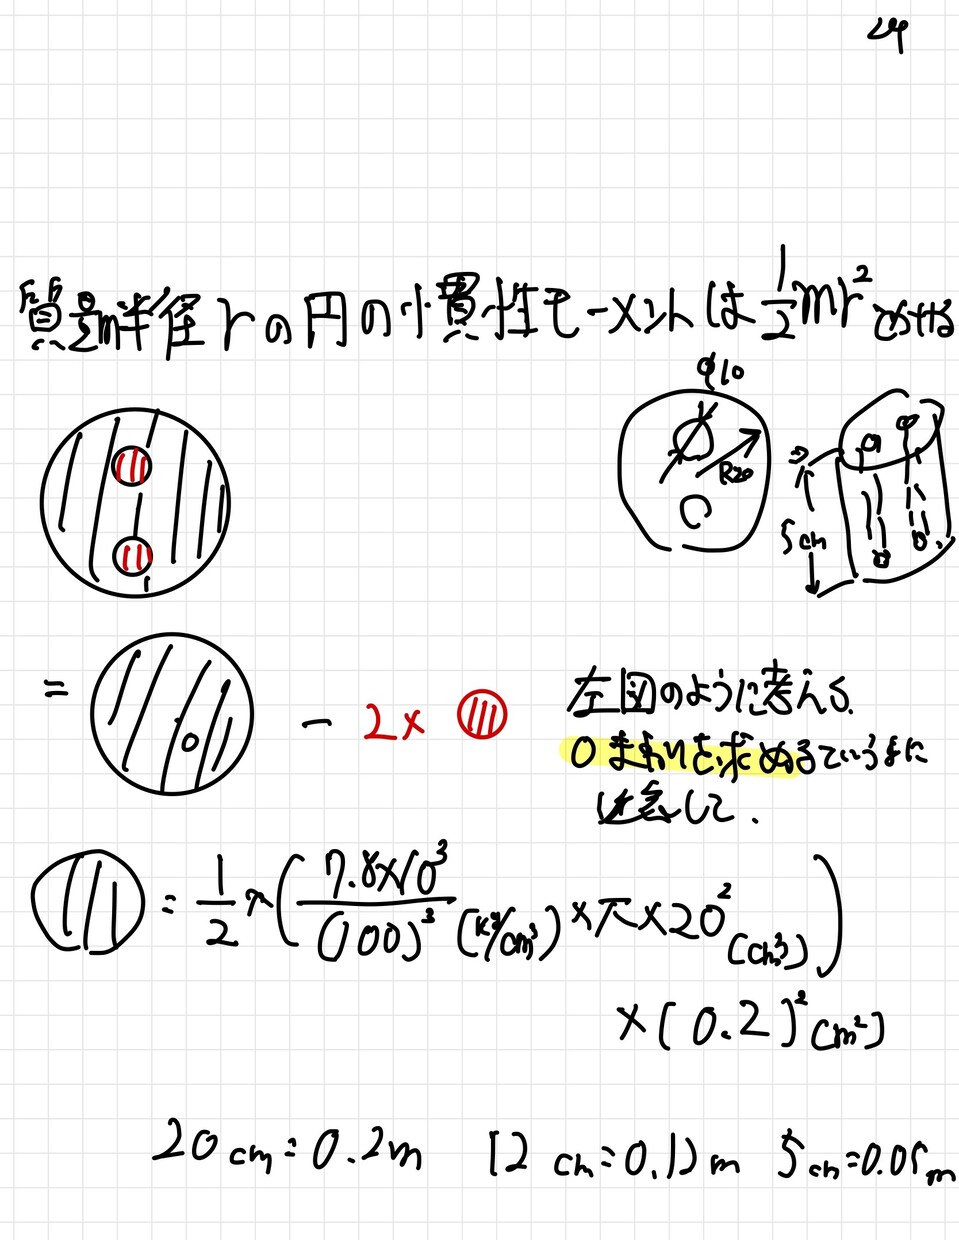 24
質量m半径rの円の慣性モーメントは 1/2 mr²
φ10
R20
5cm
= O - 2×
左図のように考える.
Oまわりを求めている
して.
= 1/2 × ( 7.8×10³ / (100)³ (kg/cm³) × π × 20² (cm³) )
× (0.2)² (m²)
20cm = 0.2m 12cm = 0.12m 5cm = 0.05m